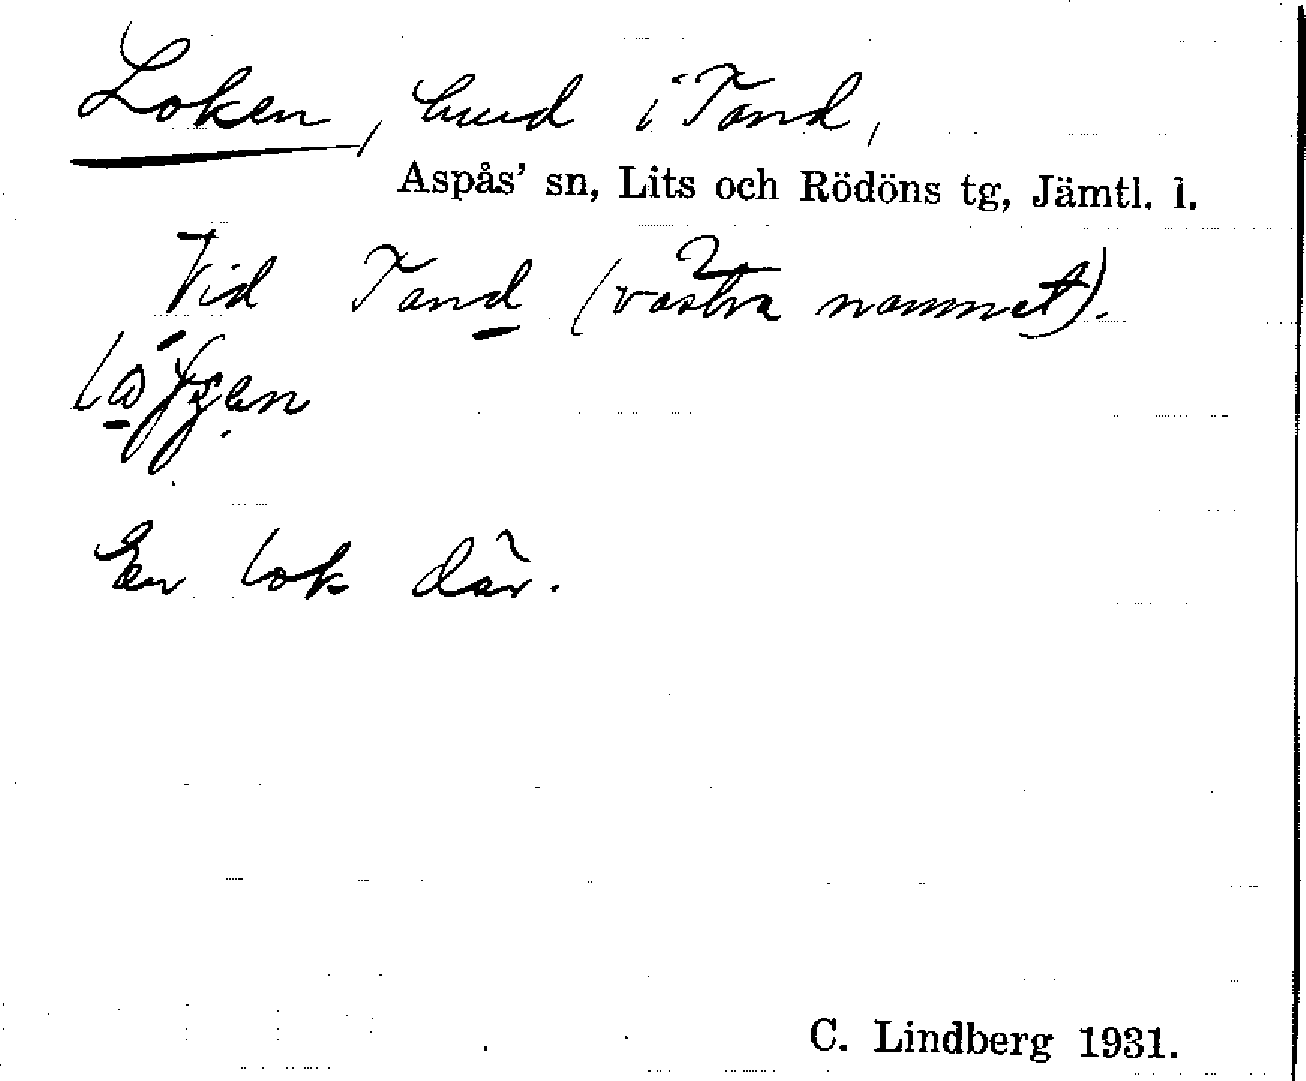 Loken, hund i Tand,
Aspås' sn, Lits och Rödöns tg, Jämtl. l.
Vid Tand (västra nammet).
En lok där.
C. Lindberg 1931.